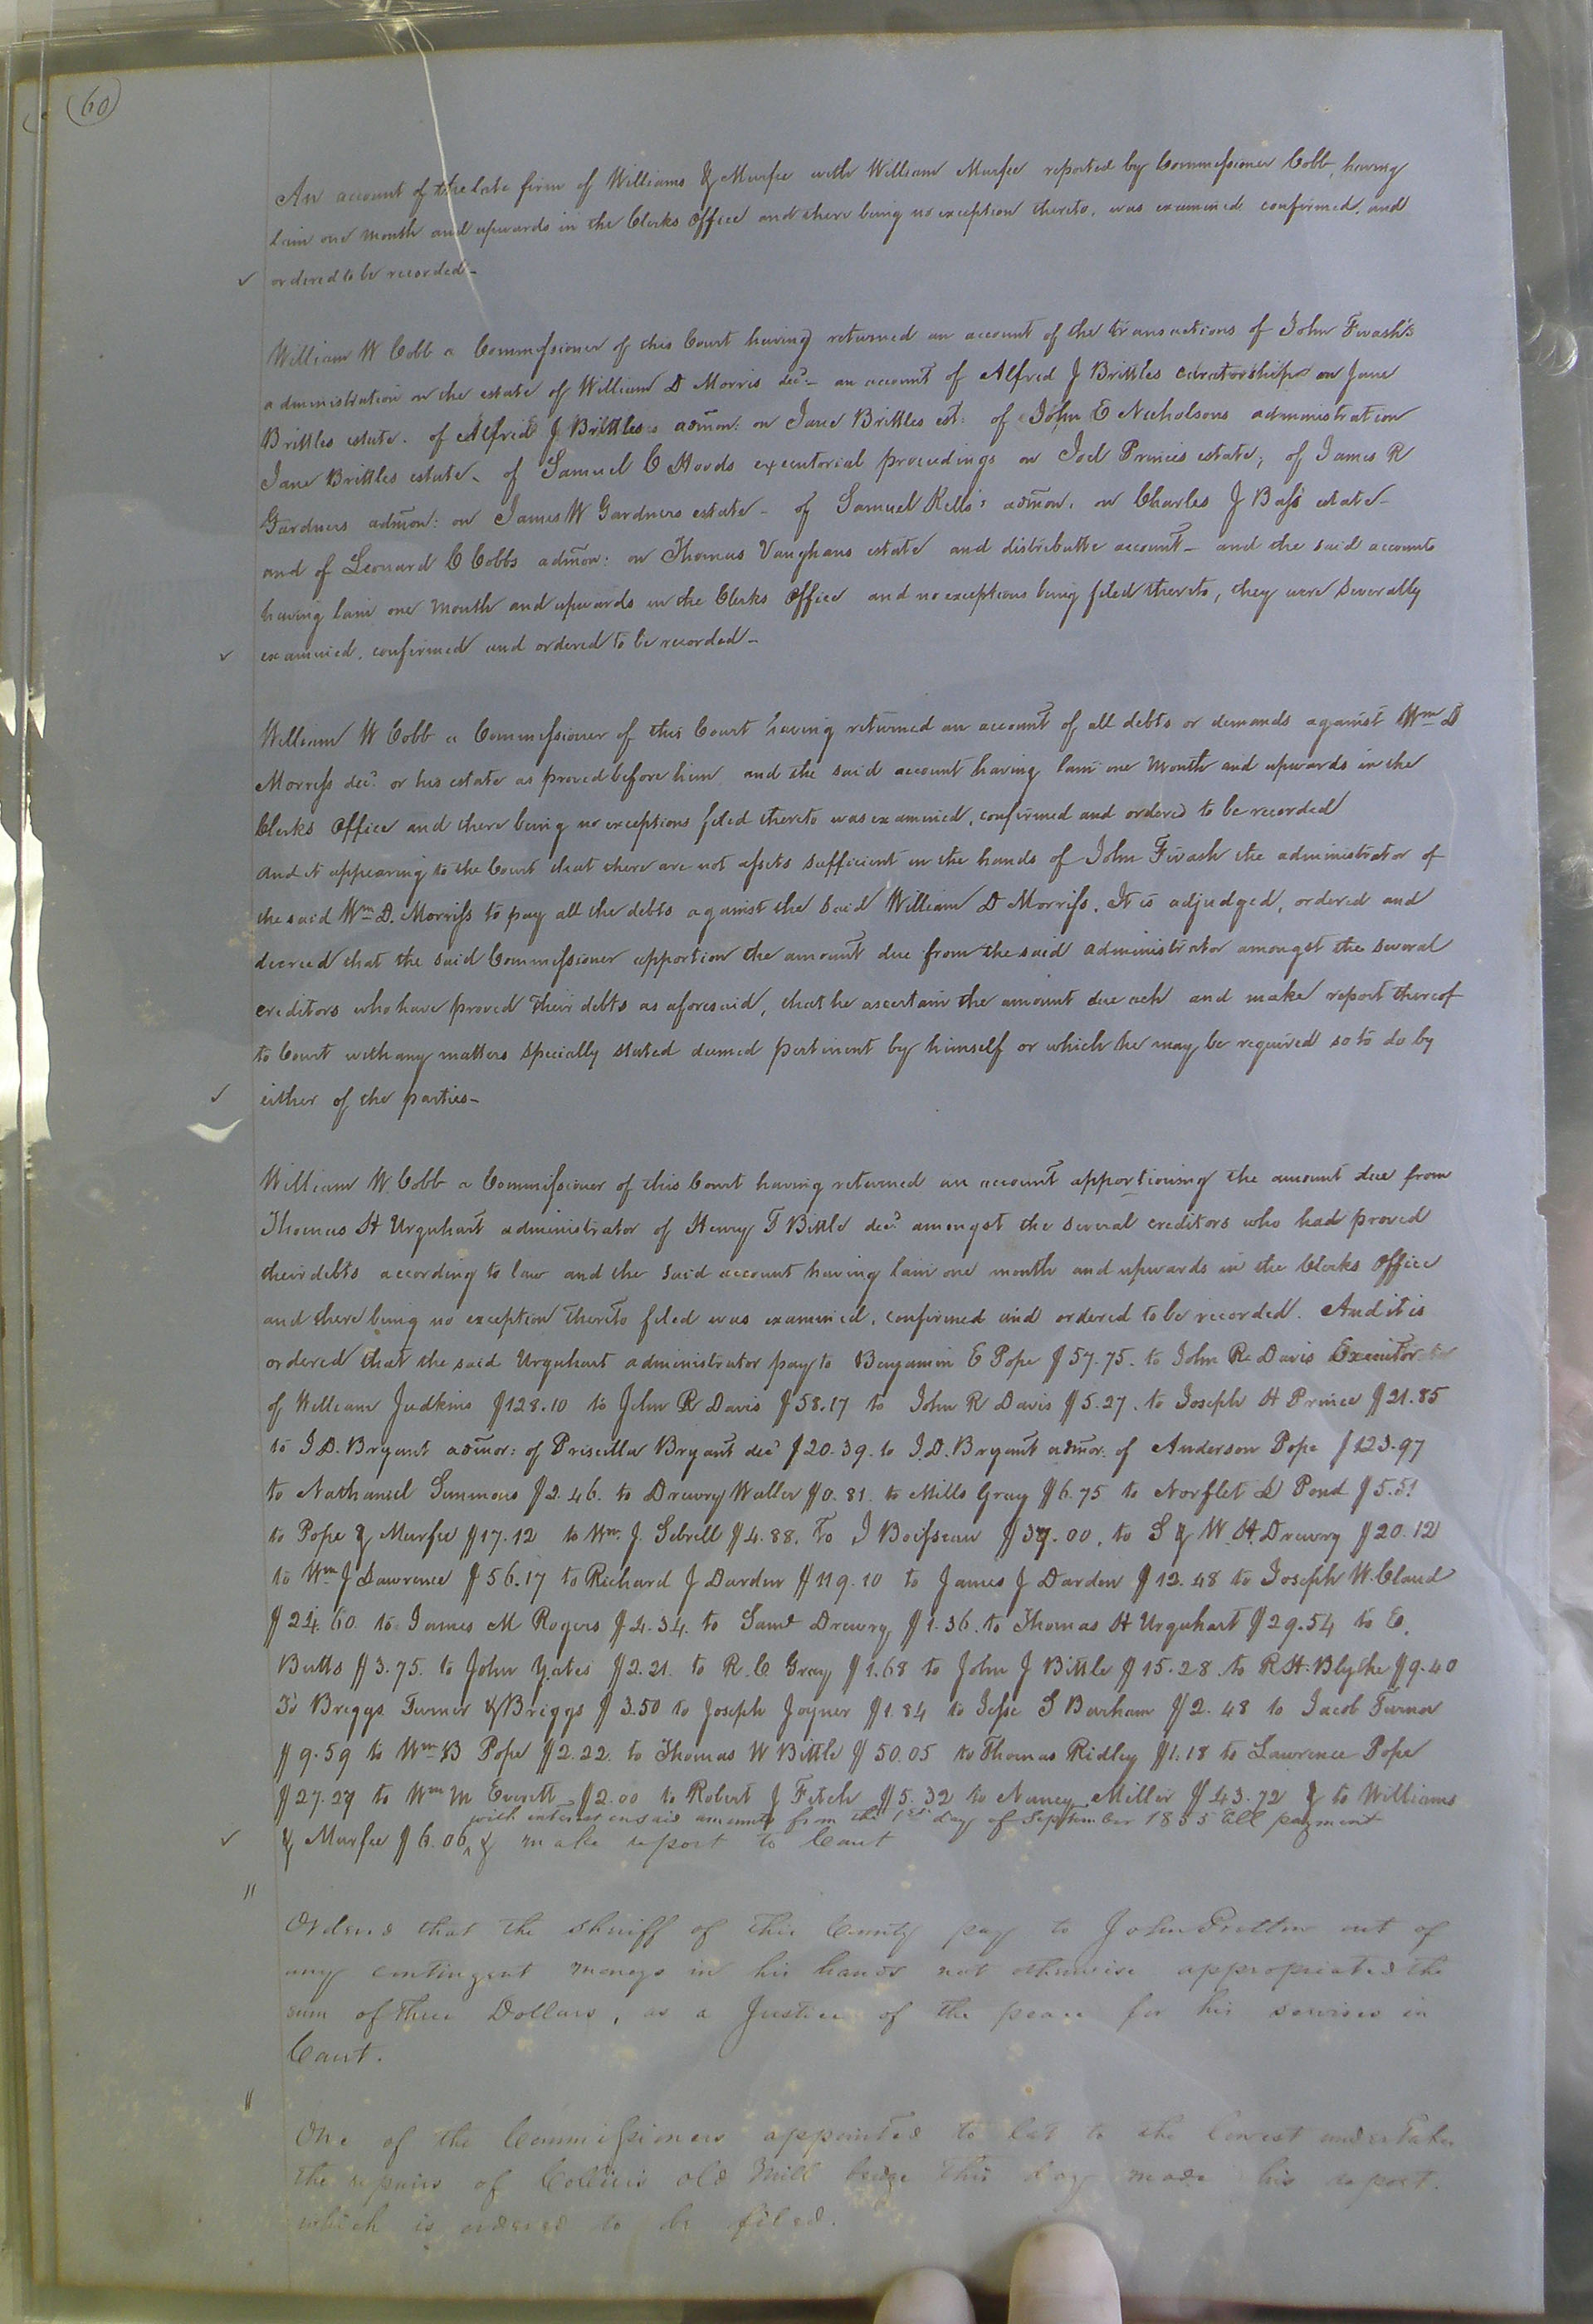 (60)
An account of the late firm of Williams & Murfee with William Murfee reported by Commissioner Cobb, having
lain one month and upwards in the Clerks Office and there being no exception thereto, was examined confirmed, and
✓ ordered to be recorded-
William W Cobb a Commissioner of this Court having returned an account of the transactions of John Fivash's
administration on the estate of William D Morris decd- an account of Alfred J Brittles curatorship on Jane
Brittles estate. of Alfred J Brittles admon: on Jane Brittles est: of John E Nicholsons administration
Jane Brittles estate, of Samuel C Hoods executorial proceedings on Joel Princes estate; of James R
Gardners admon: on James W Gardners estate- of Samuel Kello's admon. on Charles J Bass estate-
and of Leonard C Cobbs admon: on Thomas Vaughans estate and distributive account- and the said accounts
having lain one month and upwards in the Clerks Office and no exceptions being filed thereto, they were severally
✓ examined, confirmed and ordered to be recorded-
William W Cobb a Commissioner of this Court having returned an account of all debts or demands against Wm D
Morriss decd or his estate as proved before him and the said account having lain one month and upwards in the
Clerks Office and there being no exceptions filed thereto was examined, confirmed and ordered to be recorded
and it appearing to the Court that there are not assets sufficient in the hands of John Fivash the administrator of
the said Wm D. Morriss to pay all the debts against the said William D Morriss. It is adjudged, ordered and
decreed that the said Commissioner apportion the amount due from the said administrator amongst the several
creditors who have proved their debts as aforesaid, that he ascertain the amount due each and make report thereof
to Court with any matters specially stated deemed pertinent by himself or which he may be required so to do by
✓ either of the parties-
William W. Cobb a Commissioner of this Court having returned an account apportioning the amount due from
Thomas H Urquhart administrator of Henry T Bittle decd amongst the several creditors who had proved
their debts according to law and the said account having lain one month and upwards in the Clerks Office
and there being no exception thereto filed was examined, confirmed and ordered to be recorded. And it is
ordered that the said Urquhart administrator pay to Benjamin E Pope $57.75. to John R Davis Executor
of William Judkins $128.10 to John R Davis $58.17 to John R Davis $5.27. to Joseph H Prince $21.85
to J.D. Bryant admor: of Priscilla Bryant decd $20.39. to J.D. Bryant admor. of Anderson Pope $123.97
to Nathaniel Simmons $2.46. to Drewry Waller $0.81. to Mills Gray $6.75 to Norflet L Pond $5.51
to Pope & Murfee $17.12 to Wm. J. Sebrell $4.88. To J Boisseau $37.00. to S & W. H. Drewry $20.12
to Wm J Lawrence $56.17 to Richard J Darden $119.10 to James J Darden $12.48 to Joseph W. Claud
$24.60. to James M Rogers $4.34. to Saml Drewry $1.36. to Thomas H Urquhart $29.54 to E.
Butts $3.75. to John Yates $2.21. to R. C Gray $1.68 to John J Bittle $15.28. to R. H. Blythe $9.40
To Briggs Turner & Briggs $3.50 to Joseph Joyner $1.84 to Jesse S Barham $2.48 to Jacob Turner
$9.59 to Wm B Pope $2.22. to Thomas W Bittle $50.05 to Thomas Ridley $1.18 to Lawrence Pope
$27.27 to Wm M Everett $2.00 to Robert J Fetch $5.32 to Nancy Miller $43.72 & to Williams
with interest on said amounts from the 1st day of September 1855 till payment
✓ & Murfee $6.06 ^ & make report to Court
"
Ordered that the sheriff of this County pay to John out of
any contingent moneys in his hands not otherwise appropriated the
sum of three Dollars, as a Justice of the peace for his services in
Court.
"
One of the Commissioners appointed to let to the lowest undertaker
the repairs of old Mill bridge this day made his report.
which is ordered to be filed.